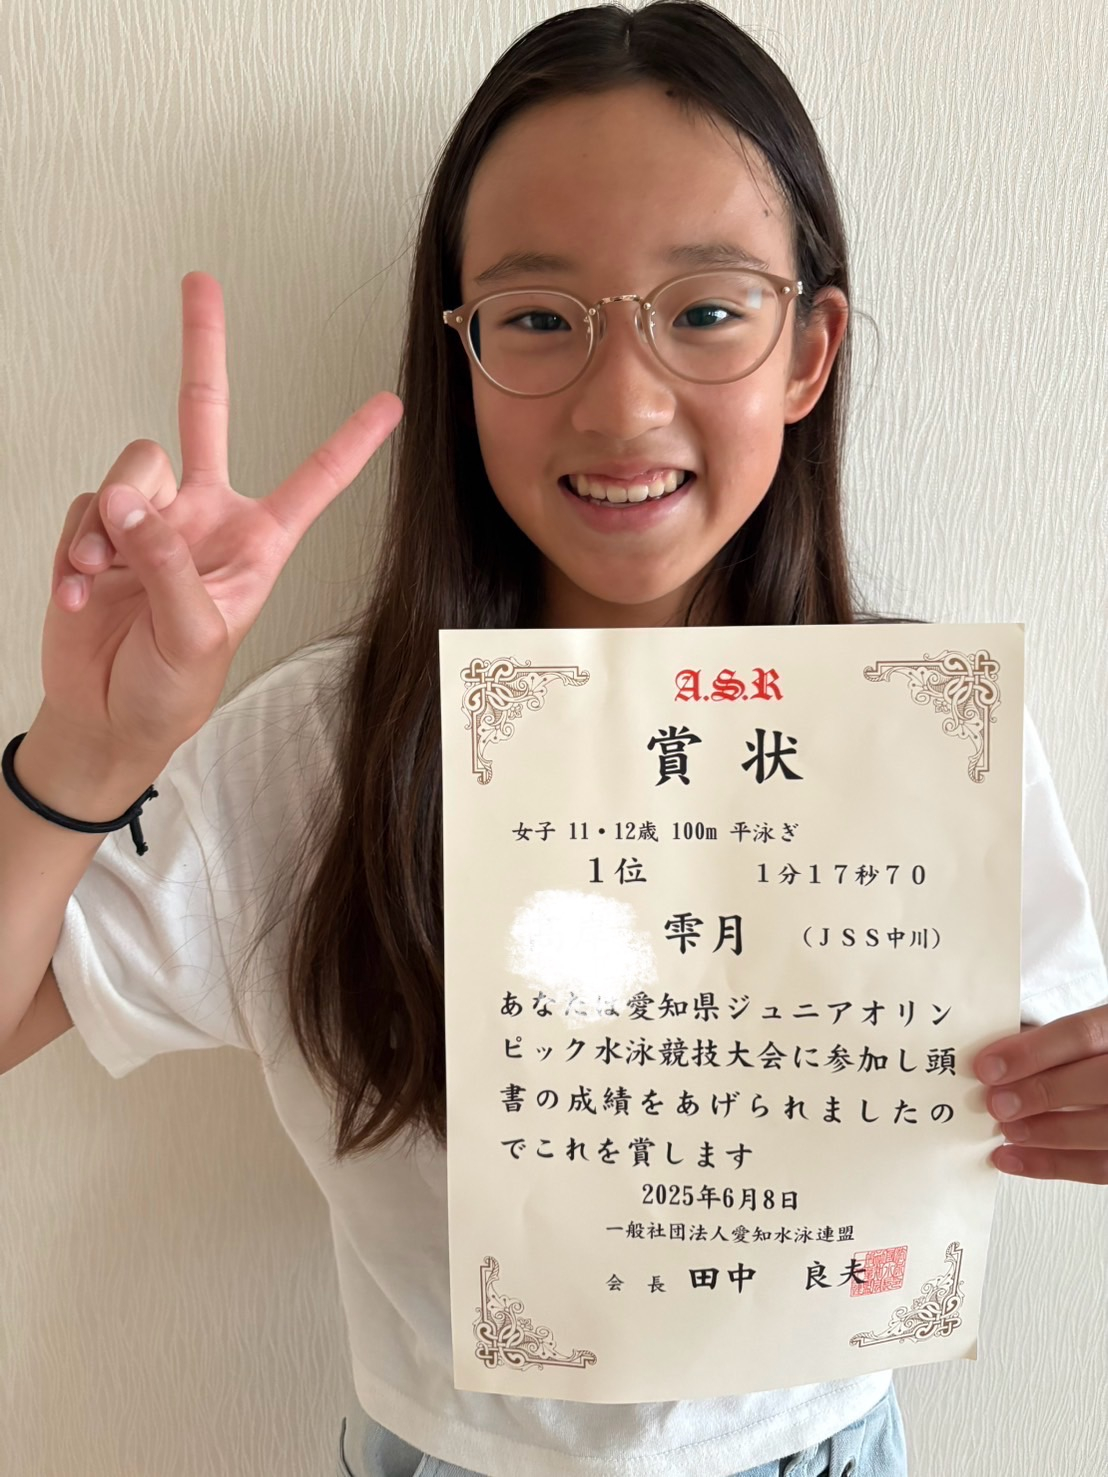 A.S.R
賞 状
女子 11・12歳 100m 平泳ぎ
1位 1分17秒70
雫月 (JSS中川)
あなたは愛知県ジュニアオリン
ピック水泳競技大会に参加し頭
書の成績をあげられましたの
でこれを賞します
2025年6月8日
一般社団法人愛知水泳連盟
会 長 田中 良夫